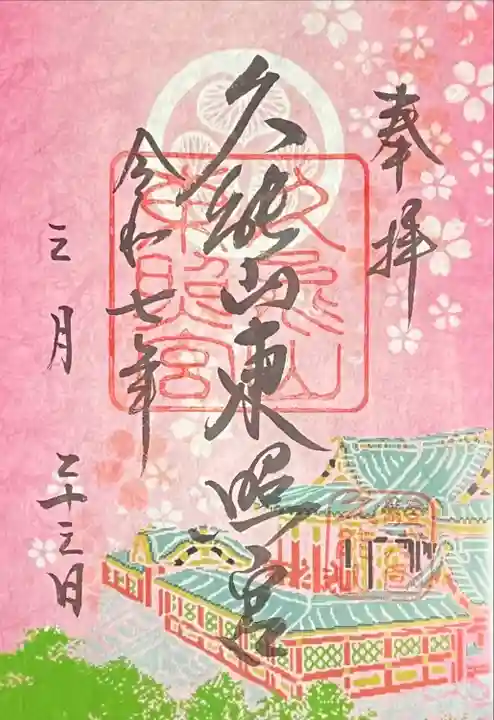 奉拝
久能山東照宮
久能山東照宮
令和七年
三月二十三日